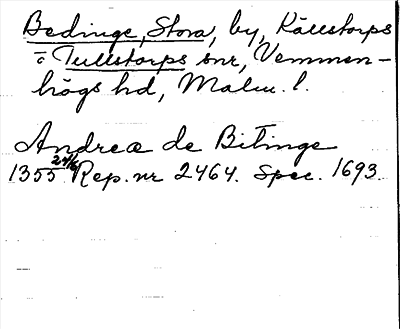 Bedinge, Stora, by, Källstorps
o Tullstorps snr, Vemmen-
högs hd, Malm. l.
Andreæ de Bitinge
1355 24/6 Rep. nr 2464. Spec. 1693.